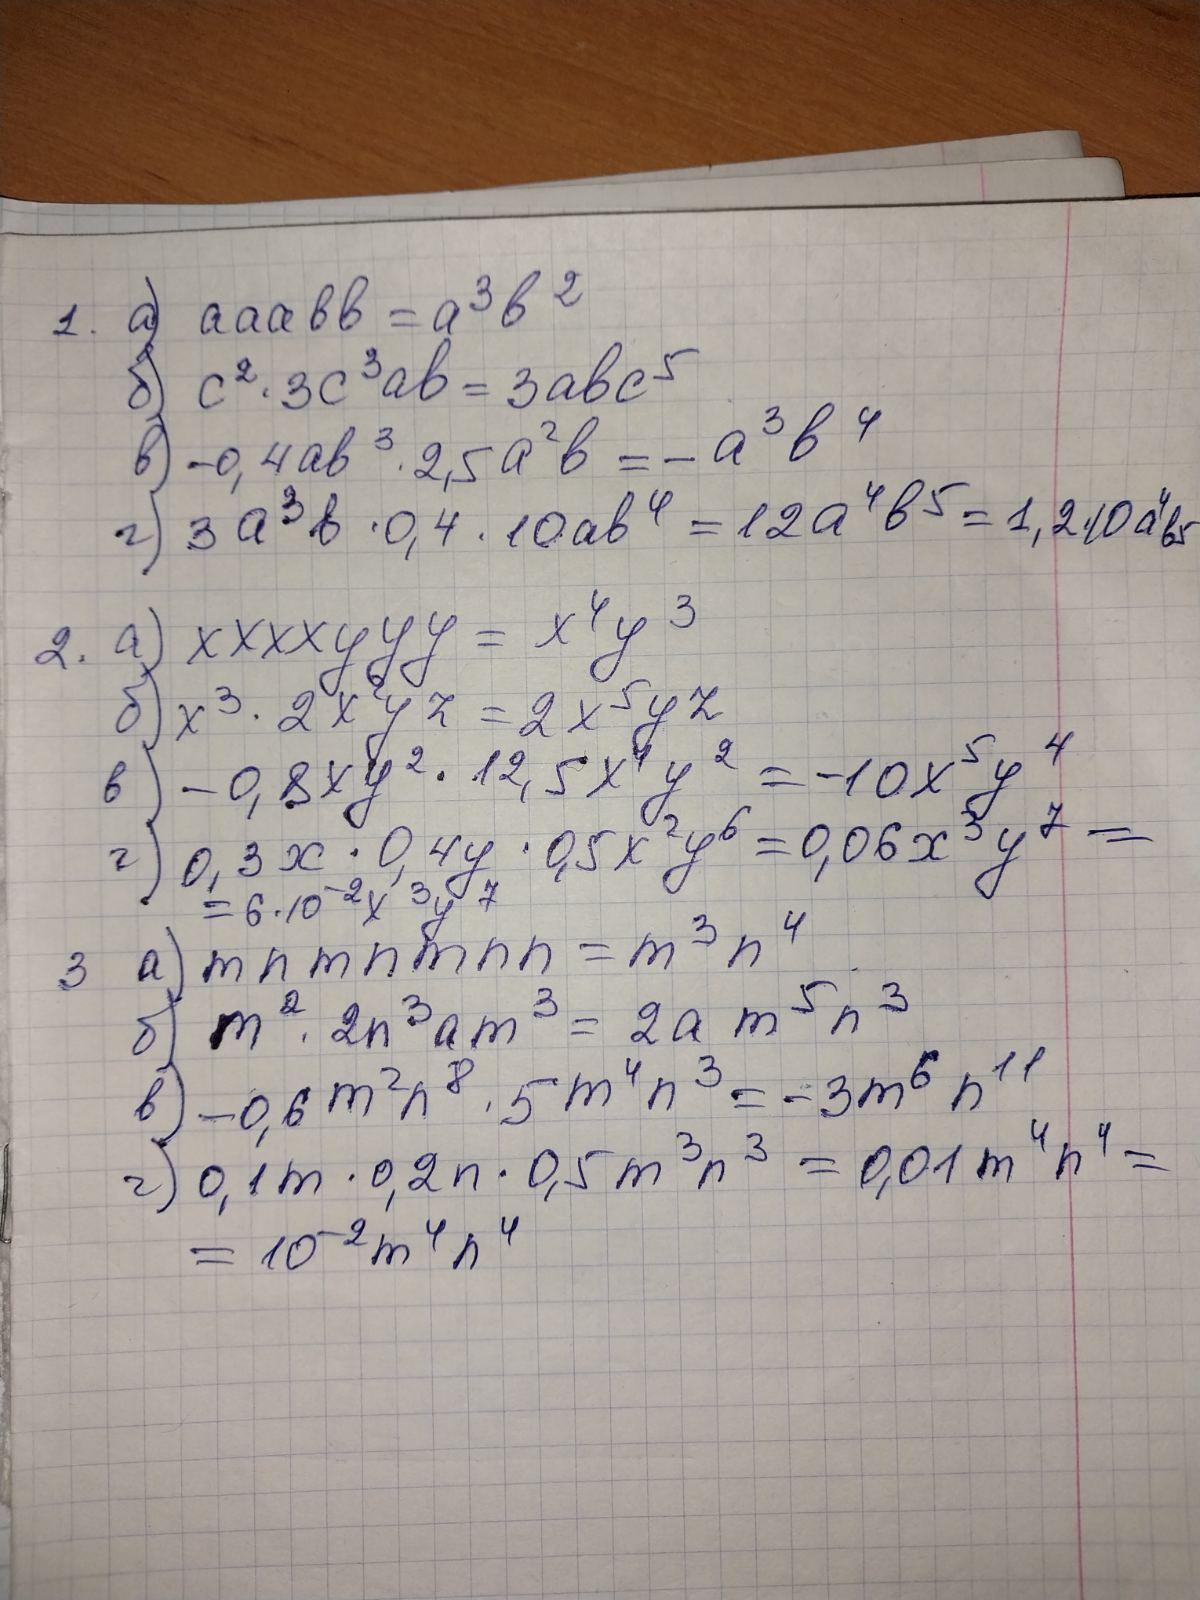 1. а) aaabb = a³b²
б) c²·3c³ab = 3abc⁵
в) -0,4ab³·2,5a²b = -a³b⁴
г) 3a³b·0,4·10ab⁴ = 12a⁴b⁵ = 1,2·10a⁴b⁵
2. а) xxxxyyy = x⁴y³
б) x³·2x²yz = 2x⁵yz
в) -0,8xy²·12,5x⁴y² = -10x⁵y⁴
г) 0,3x·0,4y·0,5x²y⁶ = 0,06x³y⁷ =
= 6·10⁻²x³y⁷
3 а) mnmnmnn = m³n⁴
б) m²·2n³am³ = 2am⁵n³
в) -0,6m²n⁸·5m⁴n³ = -3m⁶n¹¹
г) 0,1m·0,2n·0,5m³n³ = 0,01m⁴n⁴ =
= 10⁻²m⁴n⁴